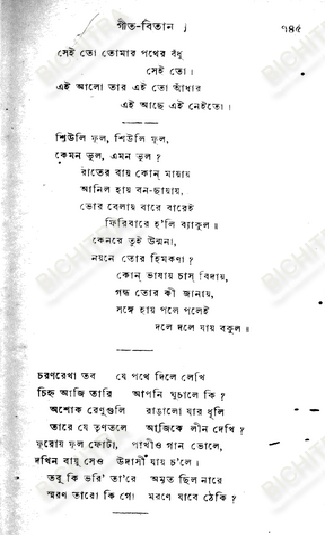 গীত-বিতান
৭৪৫
সেই তো তোমার পথের বঁধু
সেই তো।
এই আলো তার এই তো আঁধার
এই আছে এই নেইতো।
শিউলি ফুল, শিউলি ফুল,
কেমন ভুল, এমন ভুল?
রাতের বায় কোন্ মায়ায়
আনিল হায় বন-ছায়ায়,
ভোর বেলায় বারে বারেই
ফিরিবারে হ'লি ব্যাকুল॥
কেনরে তুই উন্মনা,
নয়নে তোর হিমকণা?
কোন্ ভাষায় চাস্ বিদায়,
গন্ধ তোর কী জানায়,
সঙ্গে হায় পলে পলেই
দলে দলে যায় বকুল॥
চরণরেখা তব যে পথে দিলে লেখি
চিহ্ন আজি তারি আপনি ঘুচালে কি?
অশোক রেণুগুলি রাঙালো যার ধূলি
তারে যে তৃণতলে আজিকে লীন দেখি?
ফুরায় ফুল ফোটা, পাখীও গান ভোলে,
দখিন বায়ু সেও উদাসী যায় চ'লে॥
তবু কি ভরি' তা'রে অমৃত ছিল নারে
স্মরণ তারো কি গো মরণে যাবে ঠেকি?
BICHITRA